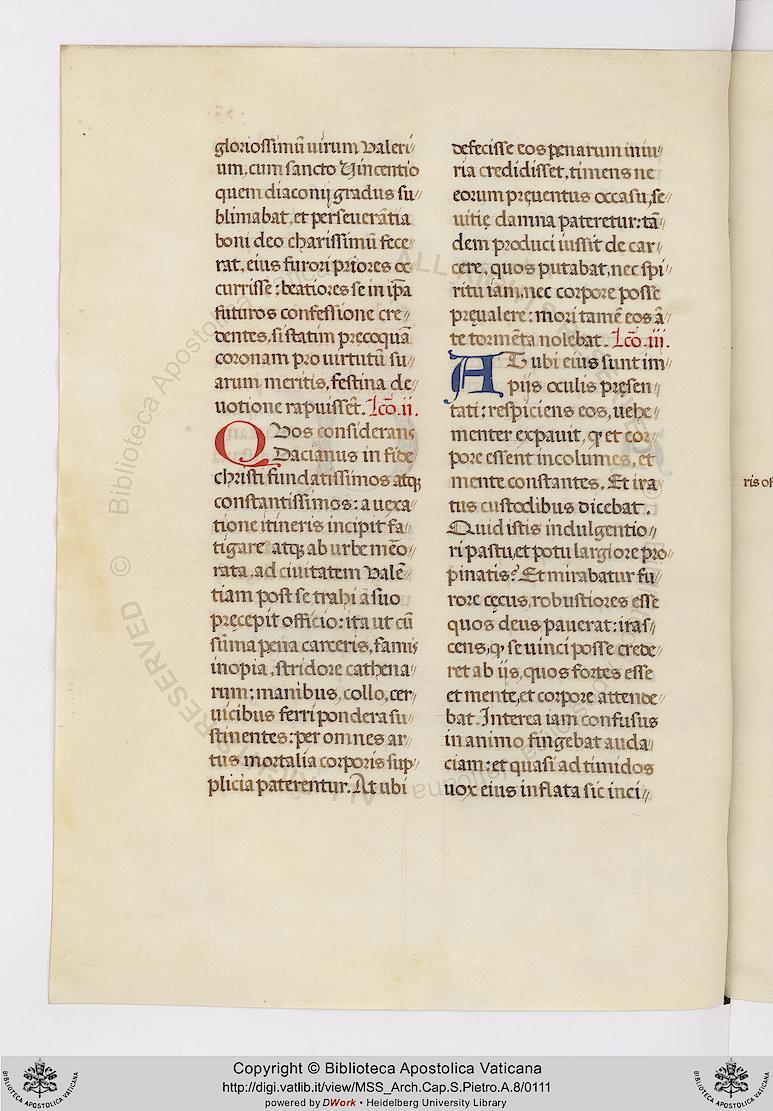 gloriossimū uirum Valeri//
um, cum sancto Vincentio
quem diaconij gradus su//
blimabat, et perseuerātia
boni deo charissimū fece//
rat, eius furori priores oc//
currisse: beatiores se in ip̄a
futuros confessione cre//
dentes, si statim precoquā
coronam pro uirtutū su//
arum meritis, festina de//
uotione rapuissēt. Lc̄o. ii.
QVos considerans
Dacianus in fide
christi fundatissimos atq;
constantissimos: a uexa//
tione itineris incipit fa//
tigare atq; ab urbe mēo//
rata, ad ciuitatem Valē//
tiam post se trahi a suo
pręcepit officio: ita ut cū
sūma pena carceris, famis
inopia, stridore cathena//
rum; manibus, collo, cer//
uicibus ferri pondera su//
stinentes: per omnes ar//
tus mortalia corporis sup//
plicia paterentur. At ubi
defecisse eos penarum iniu//
ria credidisset, timens ne
eorum pręuentus occasu, sę//
uitię damna pateretur: tā//
dem produci iussit de car//
cere, quos putabat, nec spi//
ritu iam, nec corpore posse
pręualere: mori tamē eos ā//
te tormēta nolebat. Lc̄o. iii.
AT ubi eius sunt im//
pijs oculis pręsen//
tati: respiciens eos, uehe//
menter expauit, ꝙ et cor//
pore essent incolumes, et
mente constantes. Et ira//
tus custodibus dicebat.
Quid istis indulgentio//
ri pastu, et potu largiore pro//
pinatis? Et mirabatur fu//
rore cęcus, robustiores esse
quos deus pauerat: iras//
cens, ꝙ se uinci posse crede//
ret ab ijs, quos fortes esse
et mente, et corpore attende//
bat. Interea iam confusus
in animo fingebat auda//
ciam: et quasi ad timidos
uox eius inflata sic inci//
ris of
© Biblioteca Apostolica Vaticana
ALL RIGHTS RESERVED
Copyright © Biblioteca Apostolica Vaticana
http://digi.vatlib.it/view/MSS_Arch.Cap.S.Pietro.A.8/0111
powered by DWork • Heidelberg University Library
BIBLIOTECA APOSTOLICA VATICANA
BIBLIOTECA APOSTOLICA VATICANA